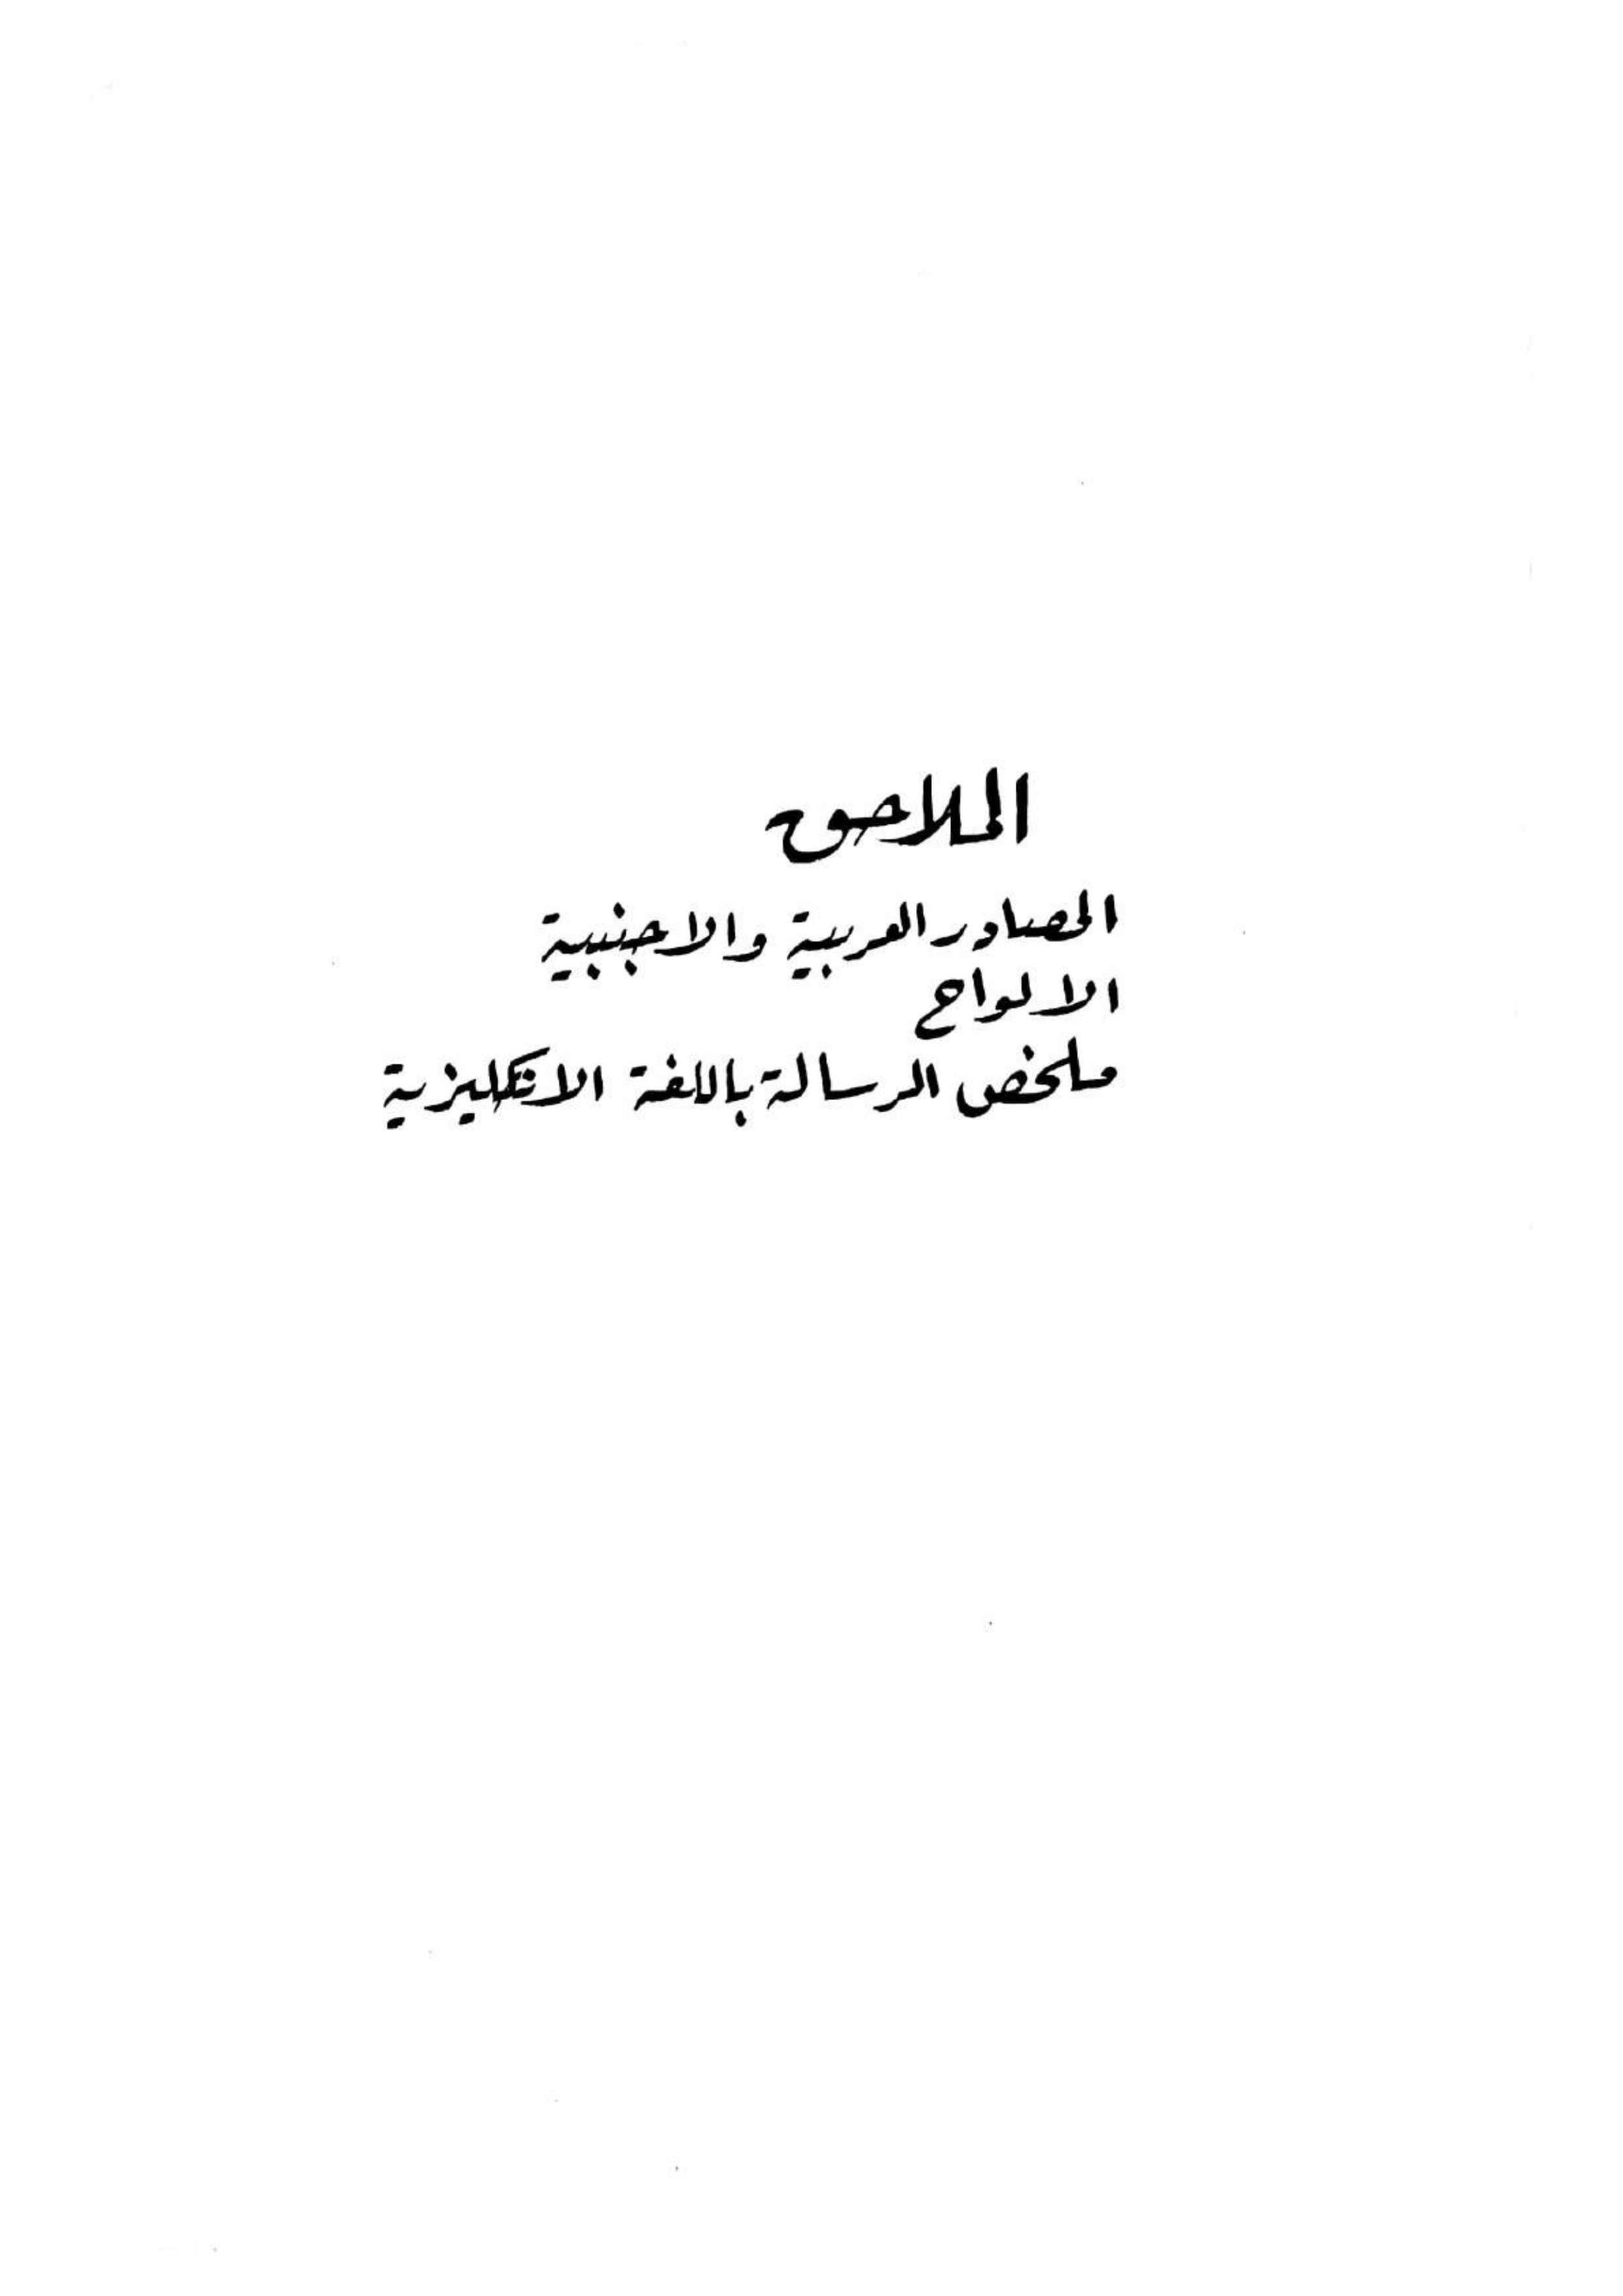 الملاحق
المصادر العربية والاجنبية
الالواح
ملخص الرسالة باللغة الانكليزية